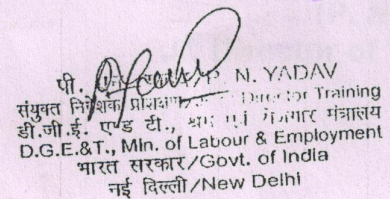 पी. N. YADAV
संयुक्त निदेशक प्रशिक्षण/ Director Training
डी.जी.ई. एण्ड टी., श्रम एवं रोजगार मंत्रालय
D.G.E.&T., Min. of Labour & Employment
भारत सरकार/Govt. of India
नई दिल्ली/New Delhi